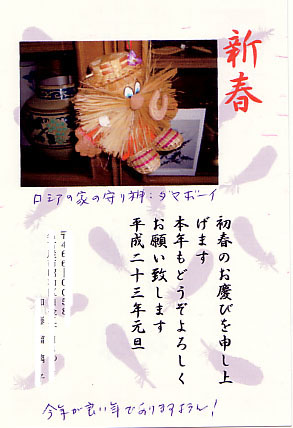 新春
ロシアの家の守り神:ダマボーイ
初春のお慶びを申し上
げます
本年もどうぞよろしく
お願い致します
平成二十三年元旦
〒466-0058
今年が良い年でありますように!